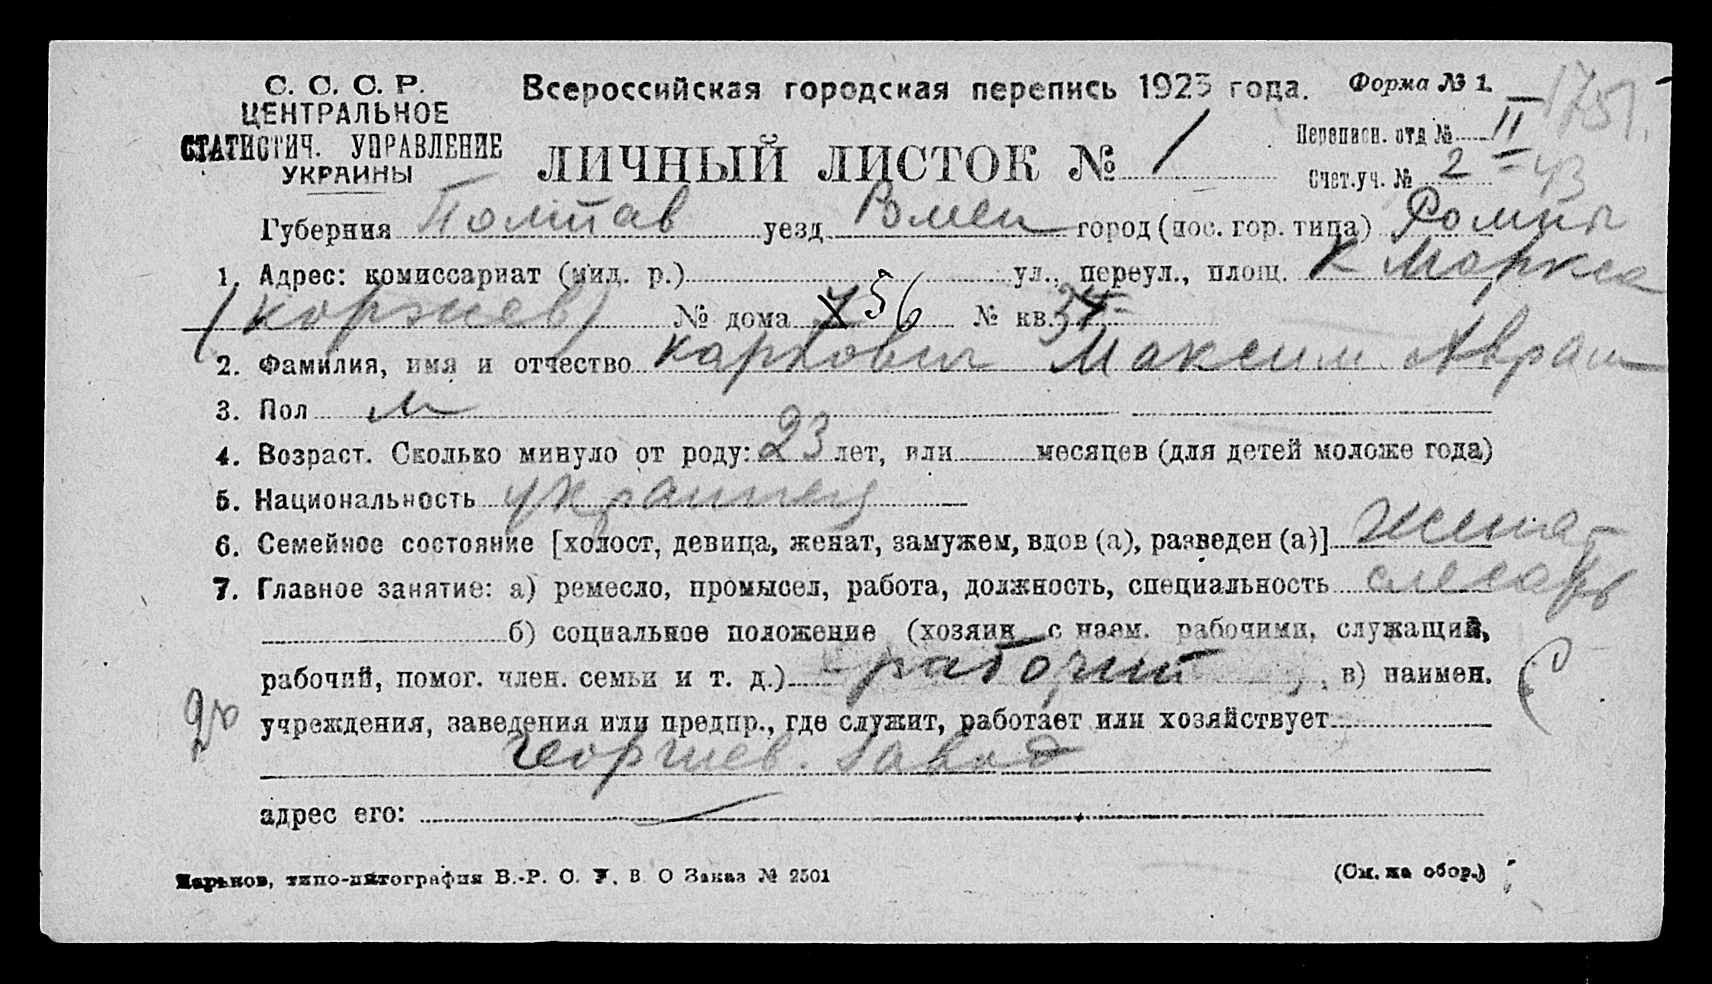 С. С. С. Р.
ЦЕНТРАЛЬНОЕ
СТАТИСТИЧ. УПРАВЛЕНИЕ
УКРАИНЫ
Всероссийская городская перепись 1923 года.
Форма № 1.
ЛИЧНЫЙ ЛИСТОК № 1
Переписн. отд № II
Счет.уч. № 2
Губерния Полтав уезд Ромен город (пос. гор. типа) Ромны
1. Адрес: комиссариат (мил. р.) ул., переул., площ. К Маркса
(Коржиев) № дома 56 № кв.
2. Фамилия, имя и отчество Карпович Максим Аврам
3. Пол м
4. Возраст. Сколько минуло от роду: 23 лет, или месяцев (для детей моложе года)
5. Национальность украинец
6. Семейное состояние [холост, девица, женат, замужем, вдов (а), разведен (а)] женат
7. Главное занятие: а) ремесло, промысел, работа, должность, специальность слесарь
б) социальное положение (хозяин с наем. рабочими, служащий,
рабочий, помог. член. семьи и т. д.) рабочий, в) наимен.
учреждения, заведения или предпр., где служит, работает или хозяйствует
Георгиев. Завод
адрес его: —
Харьков, типо-литография В.-Р. О. У. В. О Заказ № 2501
(См. на обор.)